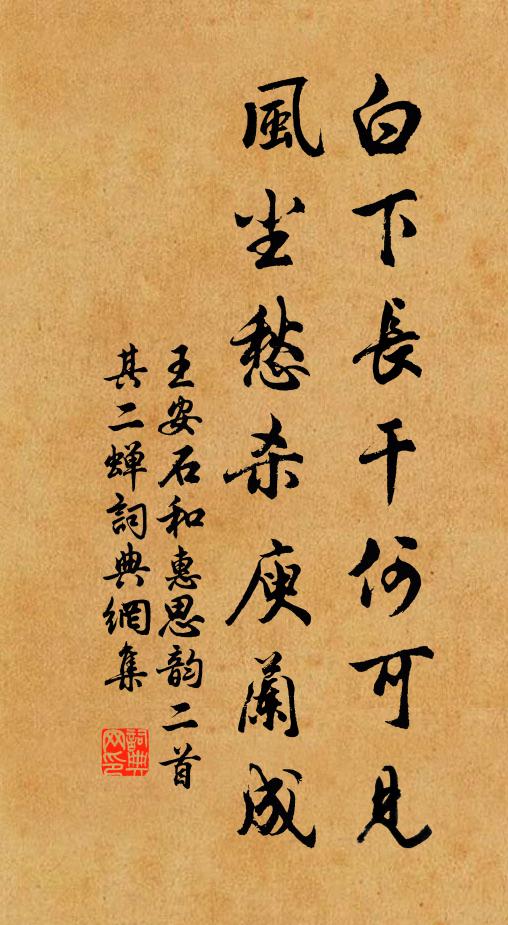 白下長干何可見
風尘愁杀庾蘭成
王安石和惠思韵二首
其二蝉詞典網集
詞典網印